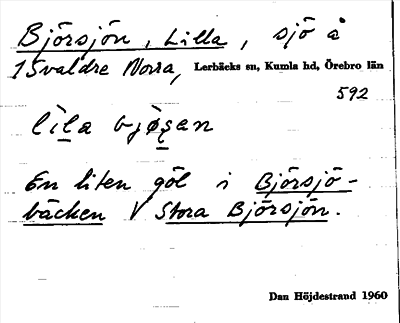 Björsjön, Lilla, sjö å
Svaldre Norra, Lerbäcks sn, Kumla hd, Örebro län
592
En liten göl i Björsjö-
bäcken V Stora Björsjön.
Dan Höjdestrand 1960